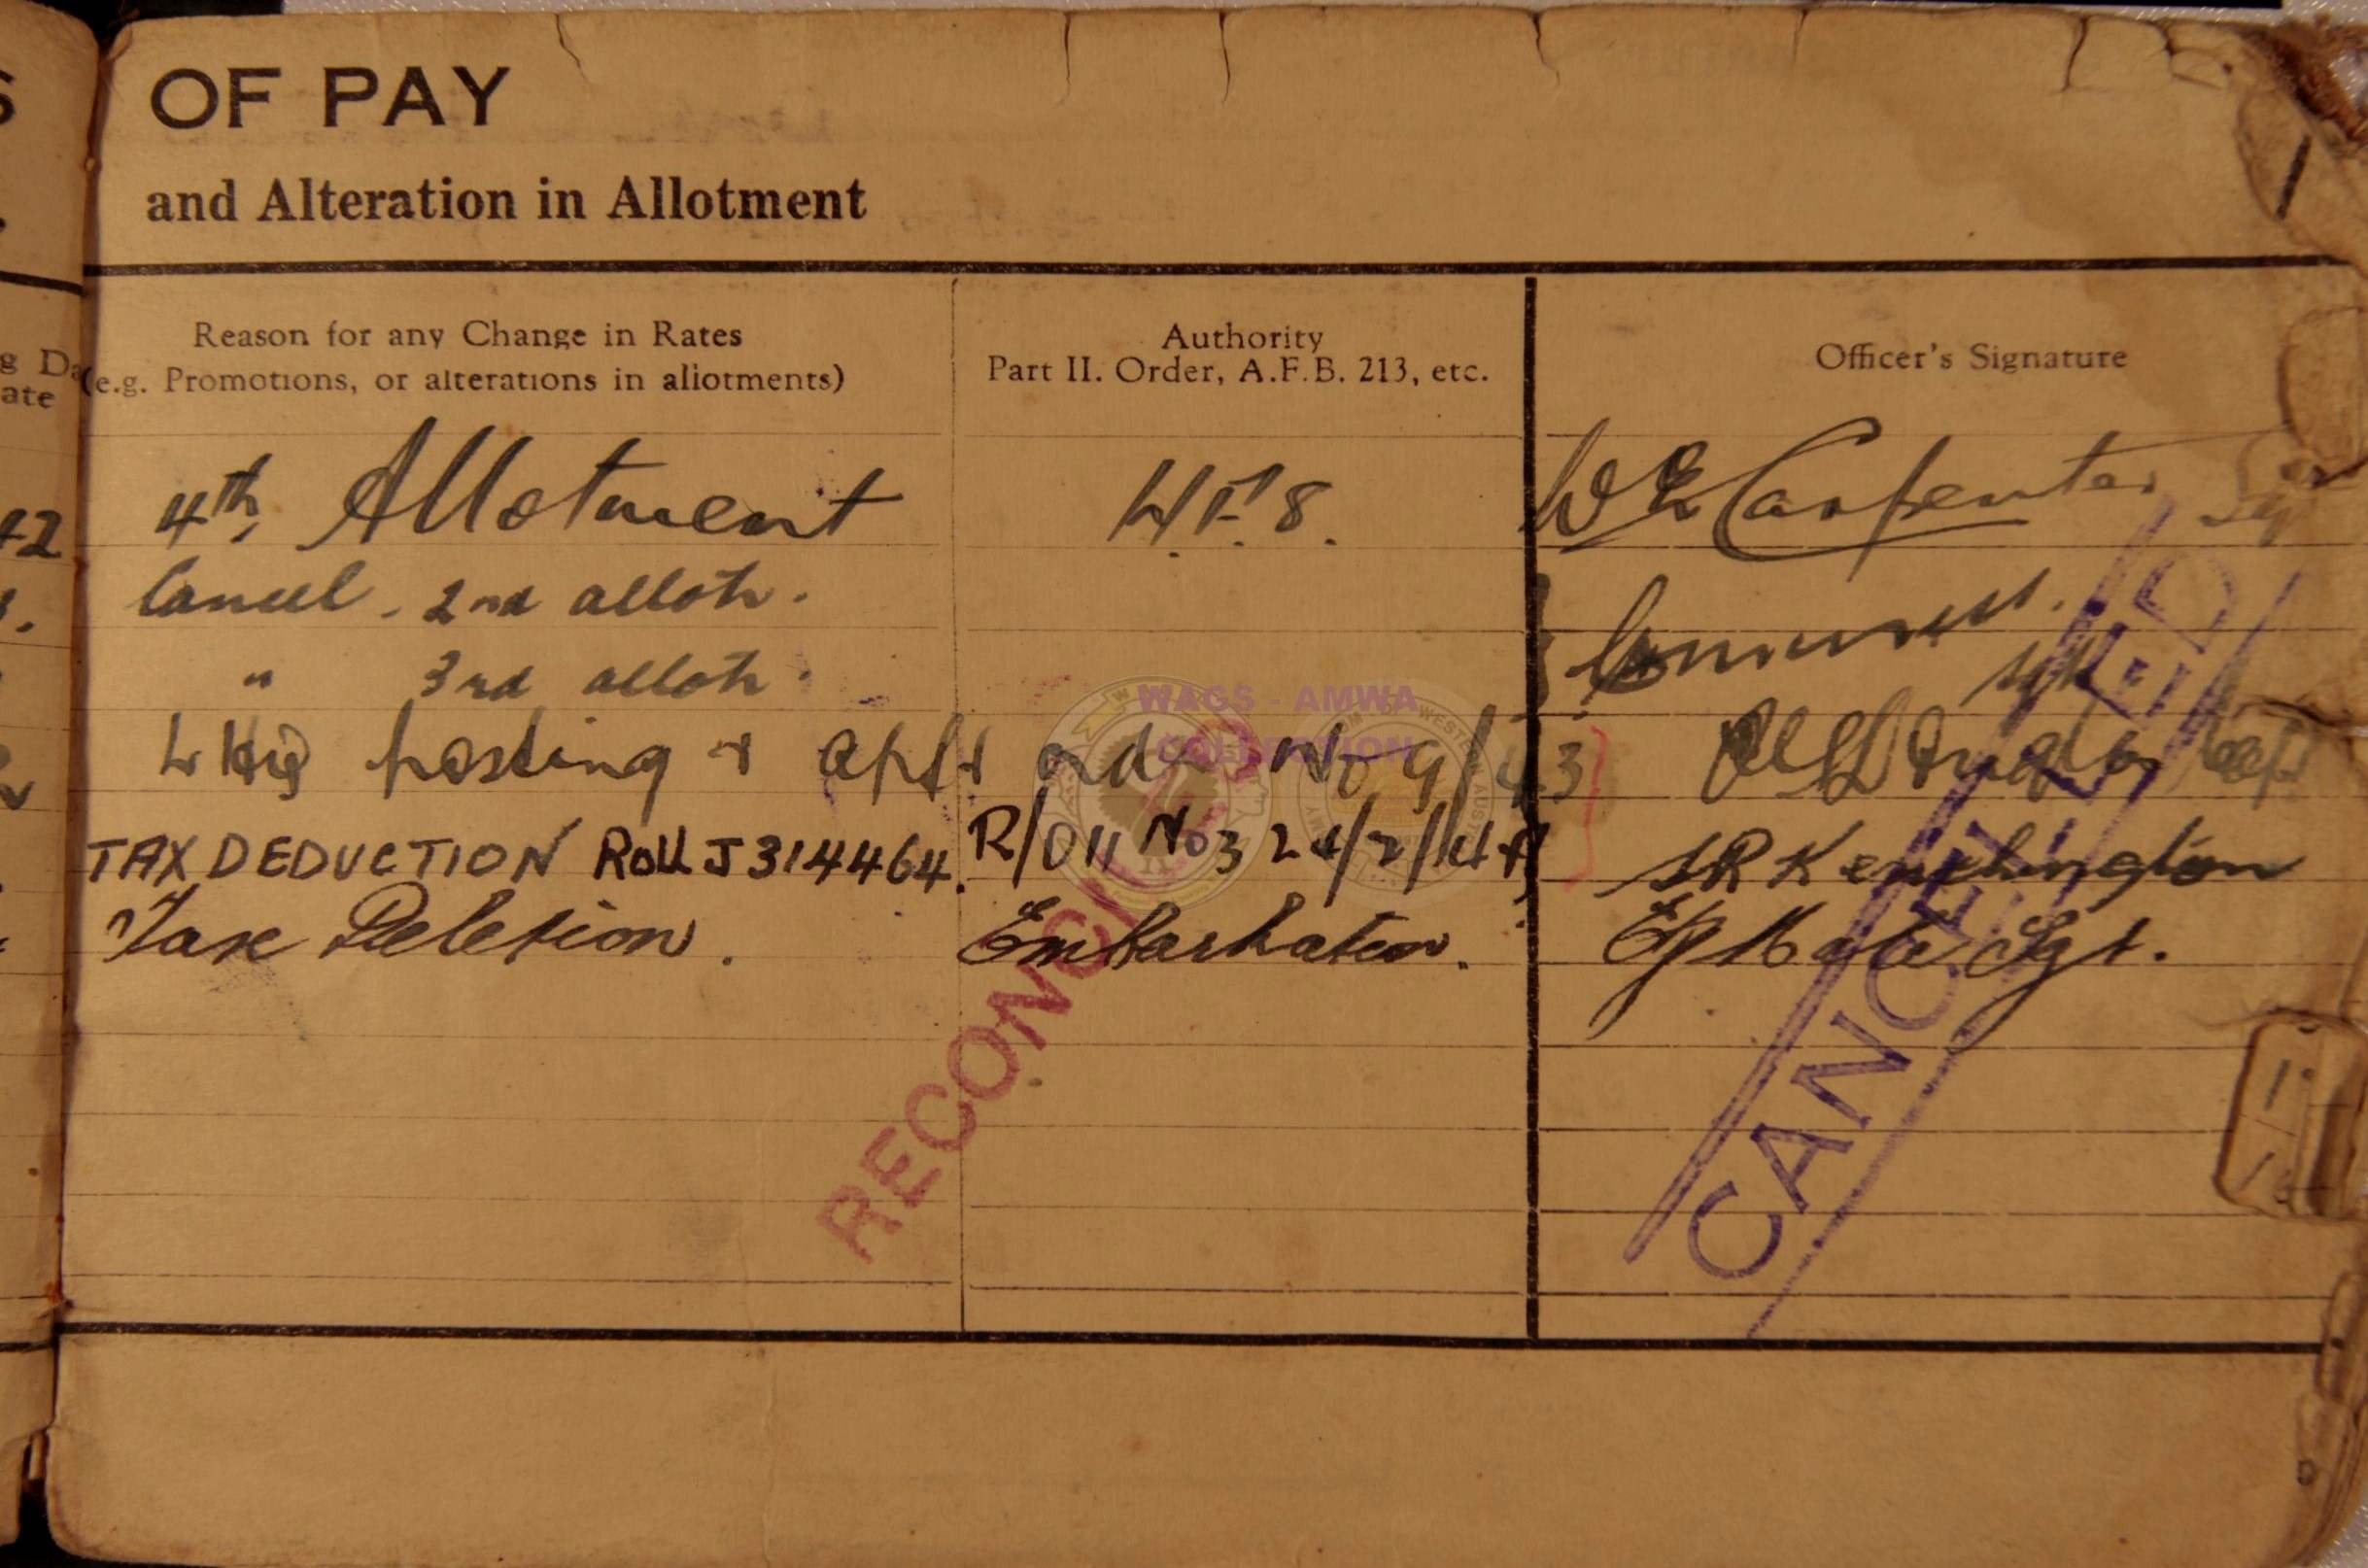 OF PAY
and Alteration in Allotment
Reason for any Change in Rates
(e.g. Promotions, or alterations in allotments)
Authority
Part II. Order, A.F.B. 213, etc.
Officer's Signature
g Da
ate
42
4th, Allotment
W.F.8.
W E Carpenter
Cancel. 2nd allotn.
" 3rd allotn.
LHQ posting + apft order No 9/43
TAX DEDUCTION ROLL J314464.
R/011 No3 24/2/44
S R Kenchington
Tax Deletion.
Embarkation.
Sgt.
WAGS - AMWA
COLLECTION
RECONCILED
CANCELLED